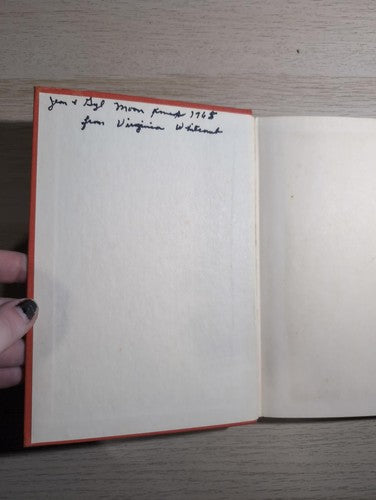 Jean & Syl Moon 1968
from Virginia Whitcomb